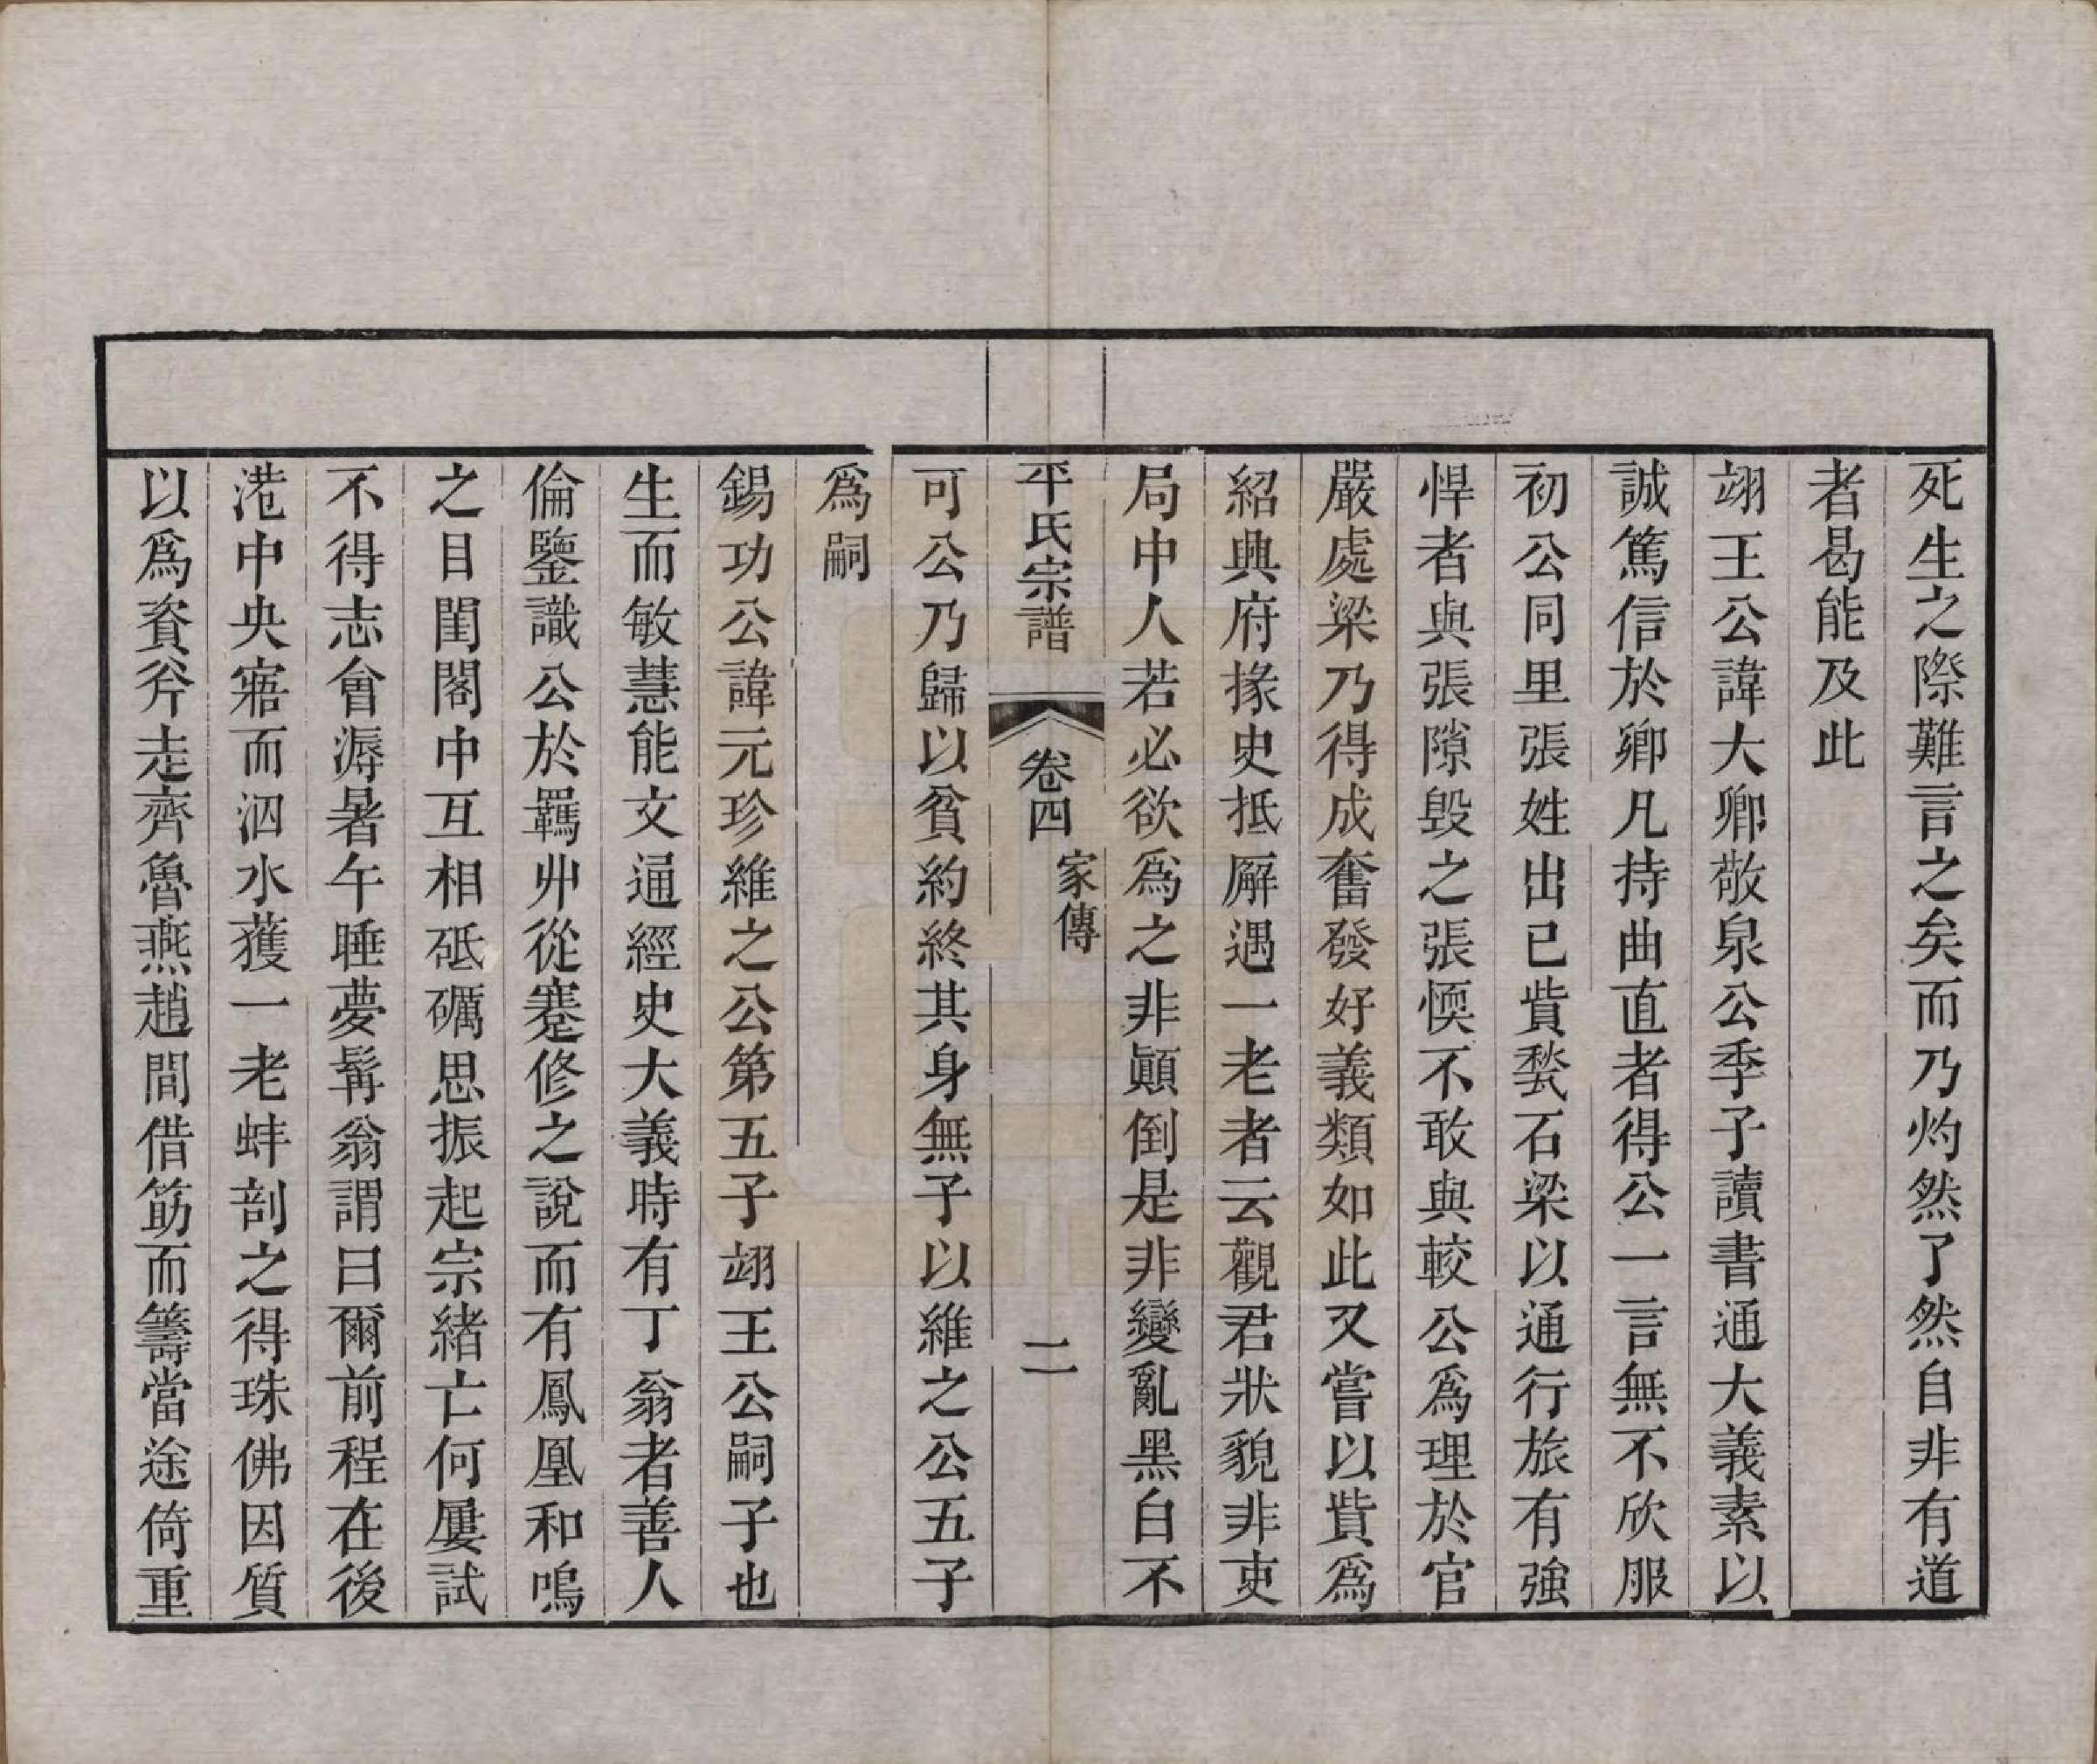 死生之際難言之矣而乃灼然了然自非有道
者曷能及此
翊王公諱大卿敬泉公季子讀書通大義素以
誠篤信於鄉凡持曲直者得公一言無不欣服
初公同里張姓出已貲甃石梁以通行旅有強
悍者與張隙毀之張愞不敢與較公爲理於官
嚴處梁乃得成奮發好義類如此又嘗以貲爲
紹興府掾史抵廨遇一老者云觀君狀貌非吏
局中人若必欲爲之非顚倒是非變亂黑白不
平氏宗譜 卷四 家傳 二
可公乃歸以貧約終其身無子以維之公五子
爲嗣
錫功公諱元珍維之公第五子翊王公嗣子也
生而敏慧能文通經史大義時有丁翁者善人
倫鑒識公於羈丱從蹇修之說而有鳳凰和鳴
之目閨閣中互相砥礪思振起宗緒亡何屢試
不得志會溽暑午睡夢髯翁謂曰爾前程在後
港中央寤而泅水獲一老蚌剖之得珠佛因質
以爲資斧走齊魯燕趙間借筯而籌當途倚重